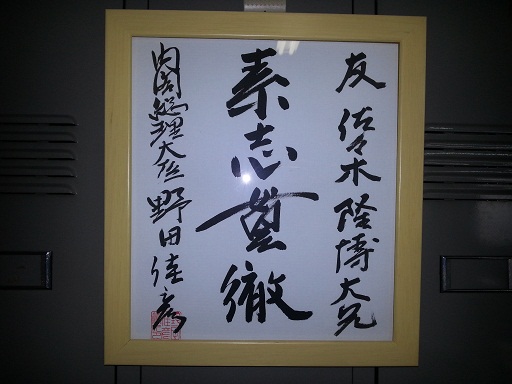 友 佐々木隆博大兄
素志貫徹
内閣総理大臣 野田佳彦